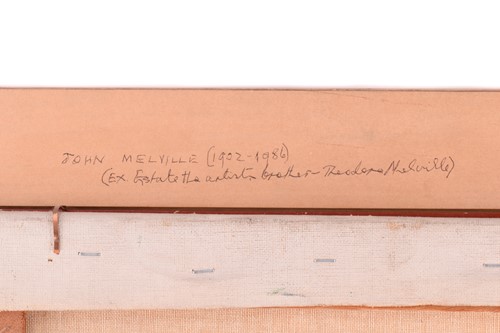 JOHN MELVILLE (1902-1986)
(Ex Estate the artists brother - Theodore Melville)